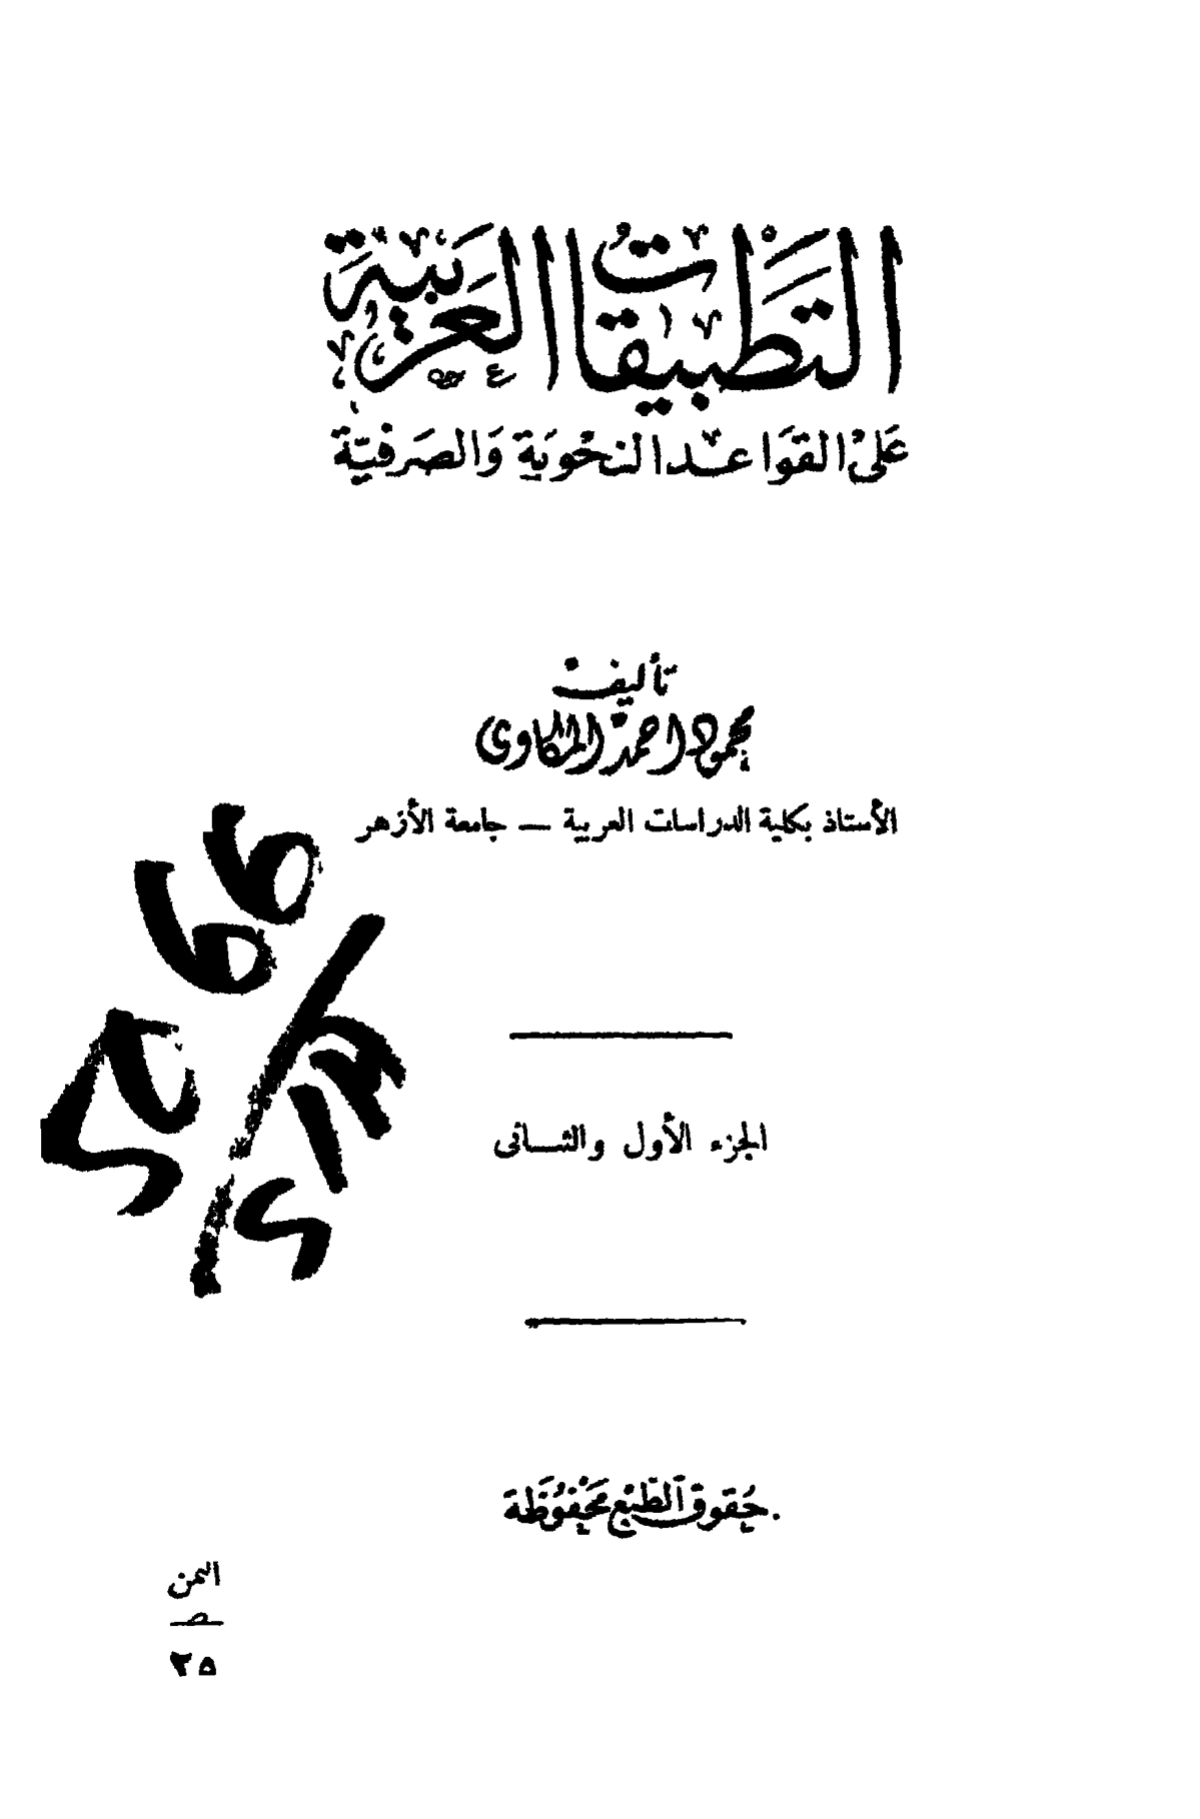 التطبيقات العربية
على القواعد النحوية والصرفية
تأليف
محمود احمد المكاوى
الأستاذ بكلية الدراسات العربية — جامعة الأزهر
الجزء الأول والثانى
حقوق الطبع محفوظة
الثمن
٢٥